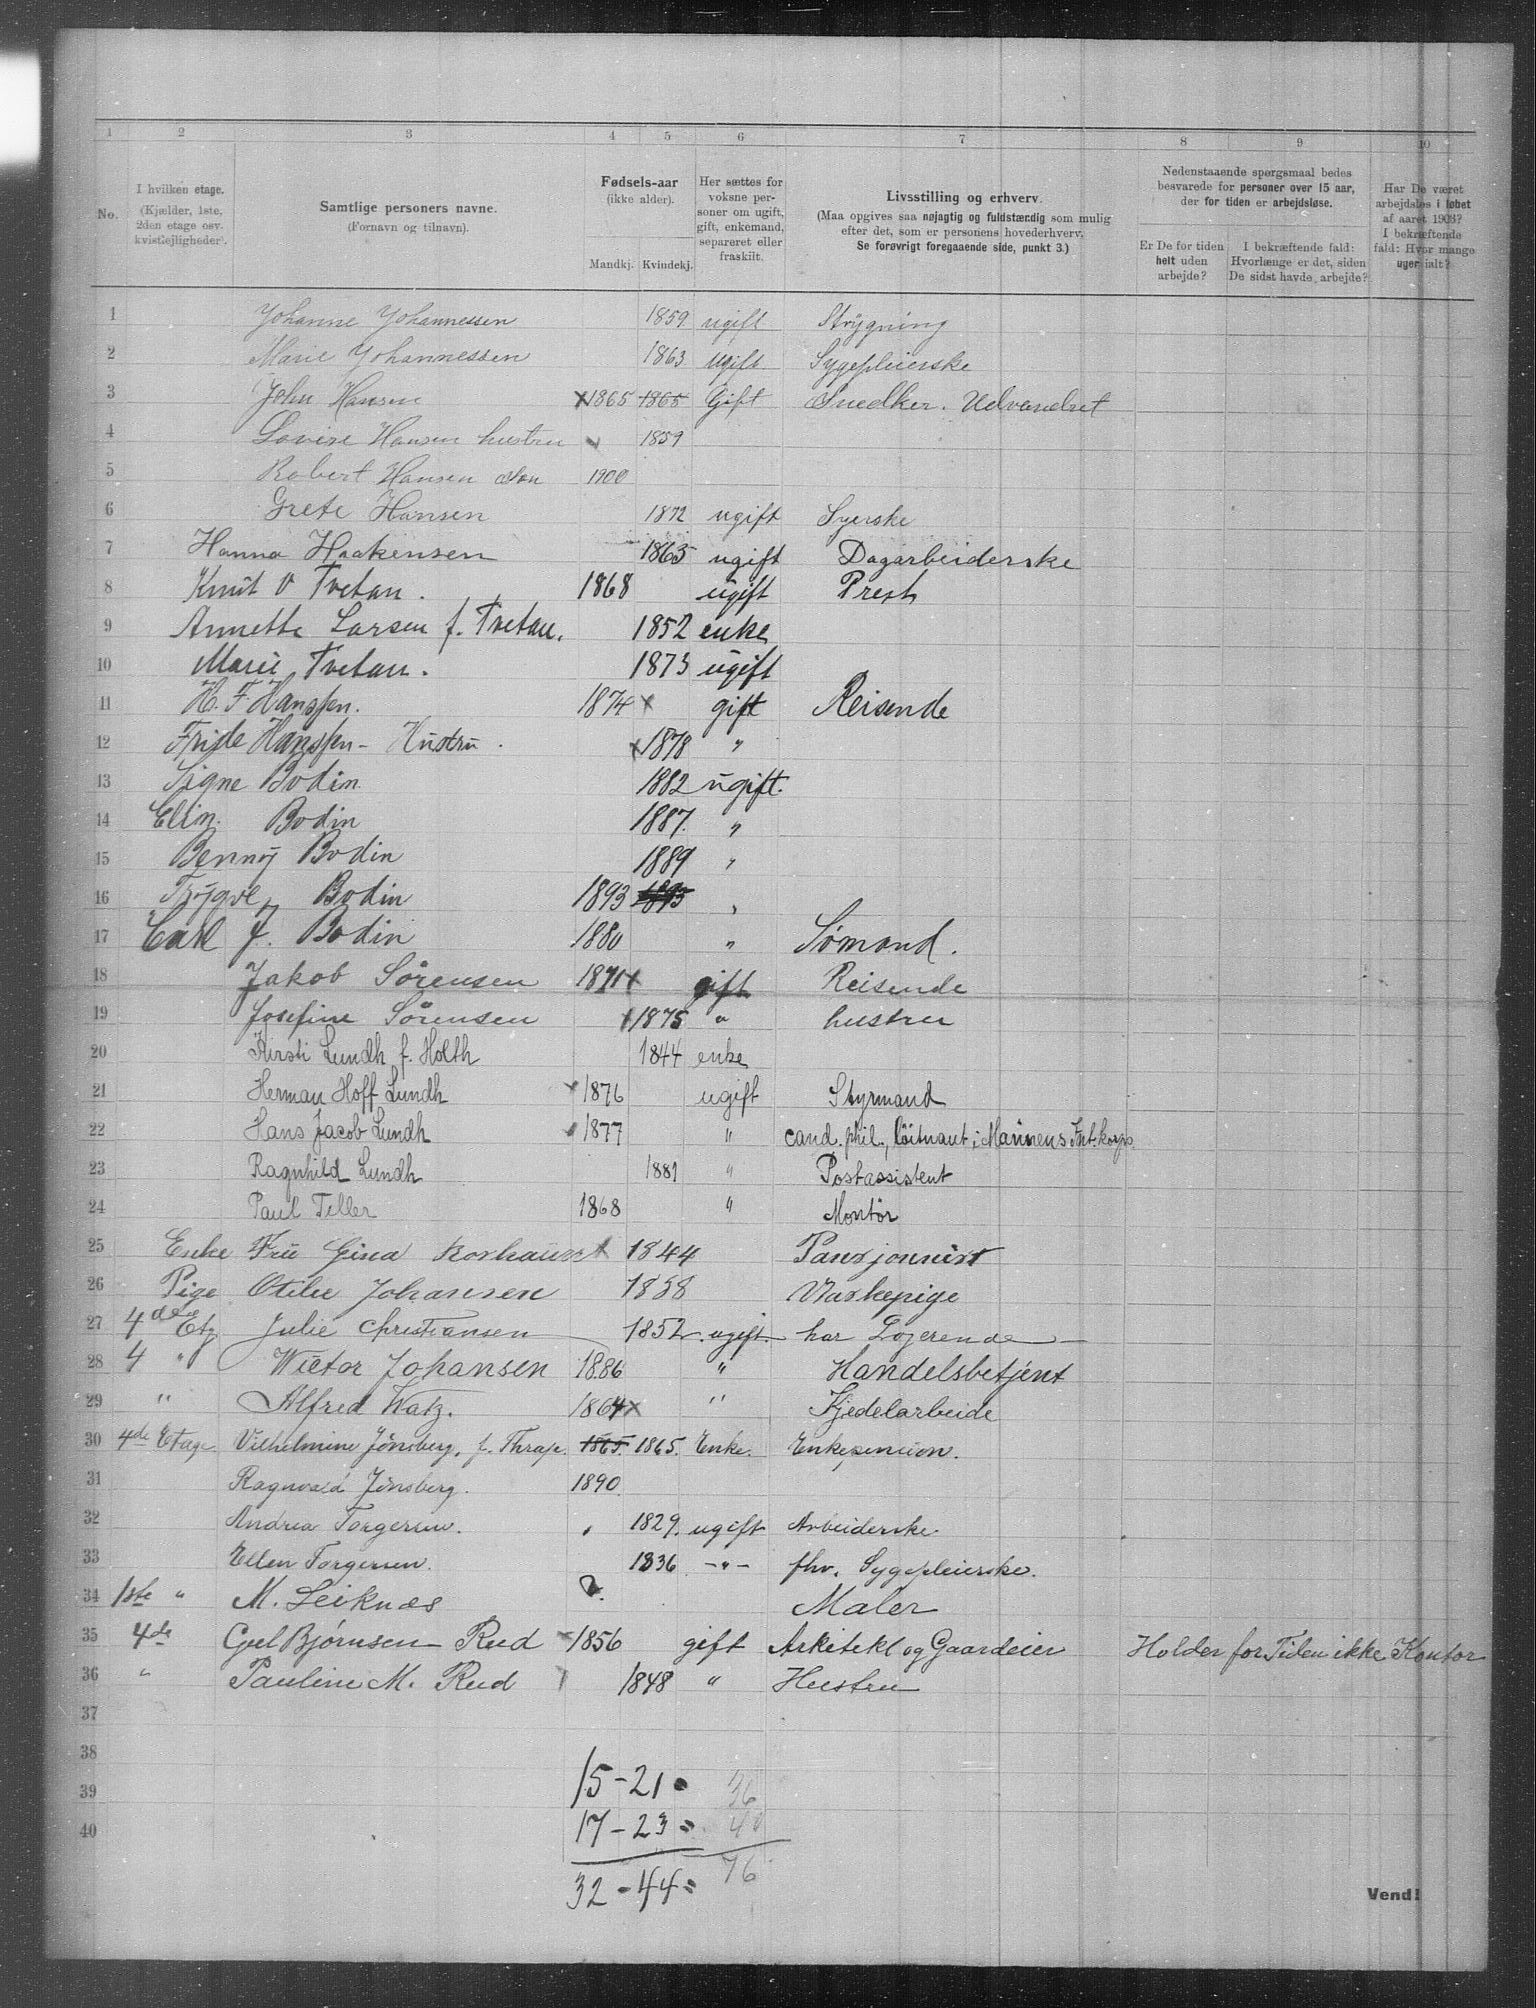 1 2 3 4 5 6 7 8 9 10
No.
I hvilken etage. (Kjælder, 1ste, 2den etage osv. kvistlejligheder).
Samtlige personers navne. (Fornavn og tilnavn).
Fødsels-aar (ikke alder). Mandkj. Kvindekj.
Her sættes for voksne personer om ugift, gift, enkemand, separeret eller fraskilt.
Livsstilling og erhverv. (Maa opgives saa nøjagtig og fuldstændig som mulig efter det, som er personens hovederhverv. Se forøvrigt foregaaende side, punkt 3.)
Nedenstaaende spørgsmaal bedes besvarede for personer over 15 aar, der for tiden er arbejdsløse.
Er De for tiden helt uden arbejde?
I bekræftende fald: Hvorlænge er det, siden De sidst havde arbejde?
Har De været arbejdsløs i løbet af aaret 1903? I bekræftende fald: Hvor mange uger ialt?
1 Johanne Johannessen 1859 ugift Strygning
2 Marie Johannessen 1863 ugift Sygepleierske
3 John Hansen x 1865 1865 Gift Snedker. Udvandret
4 Lovise Hansen hustru 1859
5 Robert Hansen søn 1900
6 Grete Hansen 1872 ugift Syerske
7 Hanna Haakensen 1863 ugift Dagarbeiderske
8 Knut O Tvetan. 1868 ugift Prest
9 Annette Larsen f. Tvetan. 1852 enke
10 Marie Tvetan. 1873 ugift
11 H. F. Hanssen. 1874 x gift Reisende
12 Fride Hanssen - Hustru. x 1878 "
13 Signe Bodin 1882 ugift.
14 Elin. Bodin 1887. "
15 Benny Bodin 1889 "
16 Trygve Bodin 1893 1893 "
17 Carl J. Bodin 1880 " Sømand.
18 Jakob Sörensen 1871 x gift Reisende
19 Josefine Sörensen x 1875 " hustru
20 Kirsti Lundh f. Holth 1844 enke
21 Herman Hoff Lundh x 1876 ugift Styrmand
22 Hans Jacob Lundh 1877 " cand. phil., löitnant i Marinens Int. korps
23 Ragnhild Lundh 1881 " Postassistent
24 Paul Tiller 1868 " Montör
25 Enke Frü Gina x 1844 Pansjonnist
26 Pige Otilie Johansen 1858 Vaskepige
27 4de Etg Julie Christiansen 1852 ugift. har Logerende
28 4 " Wictor Johansen 1886 " Handelsbetjent
29 " Alfred Watz. 1864 x " Kjedelarbeide
30 4de Etage Vilhelmine Jönsberg, f. Thrap. 1865. 1865. Enke. Enkepension.
31 Ragnvald Jönsberg. 1890.
32 Andrea Torgersen. 1829. ugift Arbeiderske.
33 Ellen Torgersen. 1836 -"- fhv. Sygepleierske.
34 1ste " M. Leiknæs ?. Maler
35 4de Bjørnsen Rud 1856 gift Arkitekt og Gaardeier Holder for Tiden ikke Kontor
36 " Pauline M. Rud 1848 " Hustru
37
38
39
40
15 - 21 = 36
17 - 23 = 40
32 - 44 = 76
Vend!